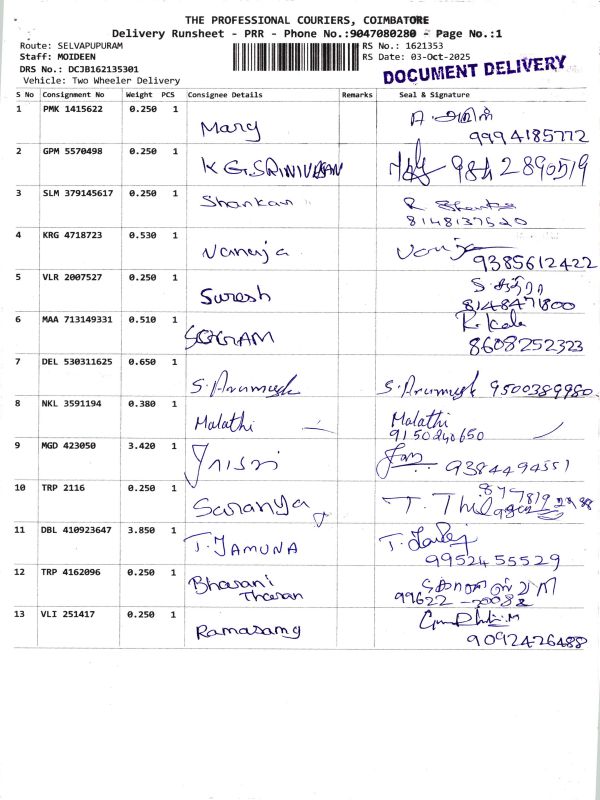 THE PROFESSIONAL COURIERS, COIMBATORE
Delivery Runsheet - PRR - Phone No.:9047080280 - Page No.:1
Route: SELVAPUPURAM RS No.: 1621353
Staff: MOIDEEN RS Date: 03-Oct-2025
DRS No.: DCJB162135301
Vehicle: Two Wheeler Delivery
DOCUMENT DELIVERY
S No Consignment No Weight PCS Consignee Details Remarks Seal & Signature
1 PMK 1415622 0.250 1 Mary
9994185772
2 GPM 5570498 0.250 1 K G. SRINIVASAN 9842890519
3 SLM 379145617 0.250 1 Shankar R
8148137520
4 KRG 4718723 0.530 1 Vanaja
9385612422
5 VLR 2007527 0.250 1 Suresh
8148471800
6 MAA 713149331 0.510 1 R. Kala
8608252323
7 DEL 530311625 0.650 1 S. Arumugk S. Arumugk 9500389980
8 NKL 3591194 0.380 1 Malathi Malathi
9150240650
9 MGD 423050 3.420 1 9384494551
10 TRP 2116 0.250 1 Saranya
11 DBL 410923647 3.850 1 T. JAMUNA
9952455529
12 TRP 4162096 0.250 1 Bharani
Tharan
13 VLI 251417 0.250 1 Ramasamy
9092426488